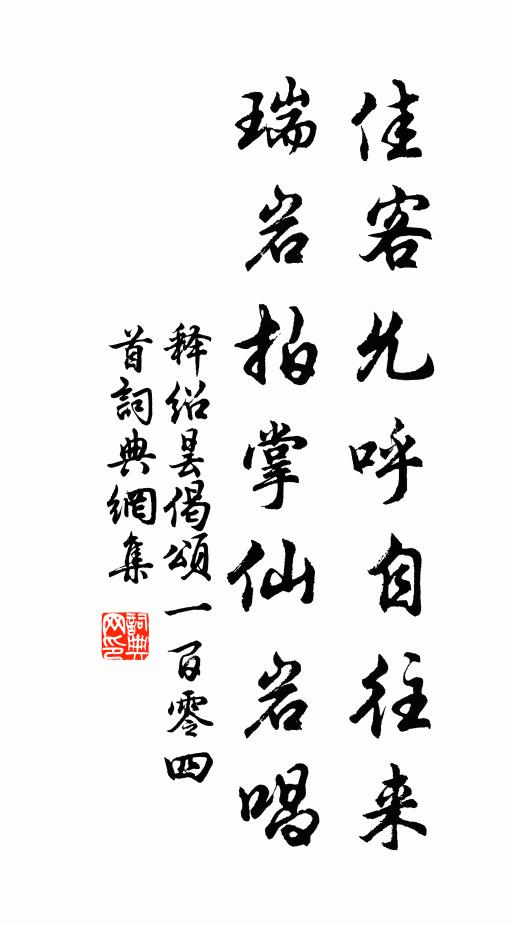 佳客先呼自往来
瑞岩拍掌仙岩唱
释绍昙偈颂一百零四
首詞典網集
詞典网印